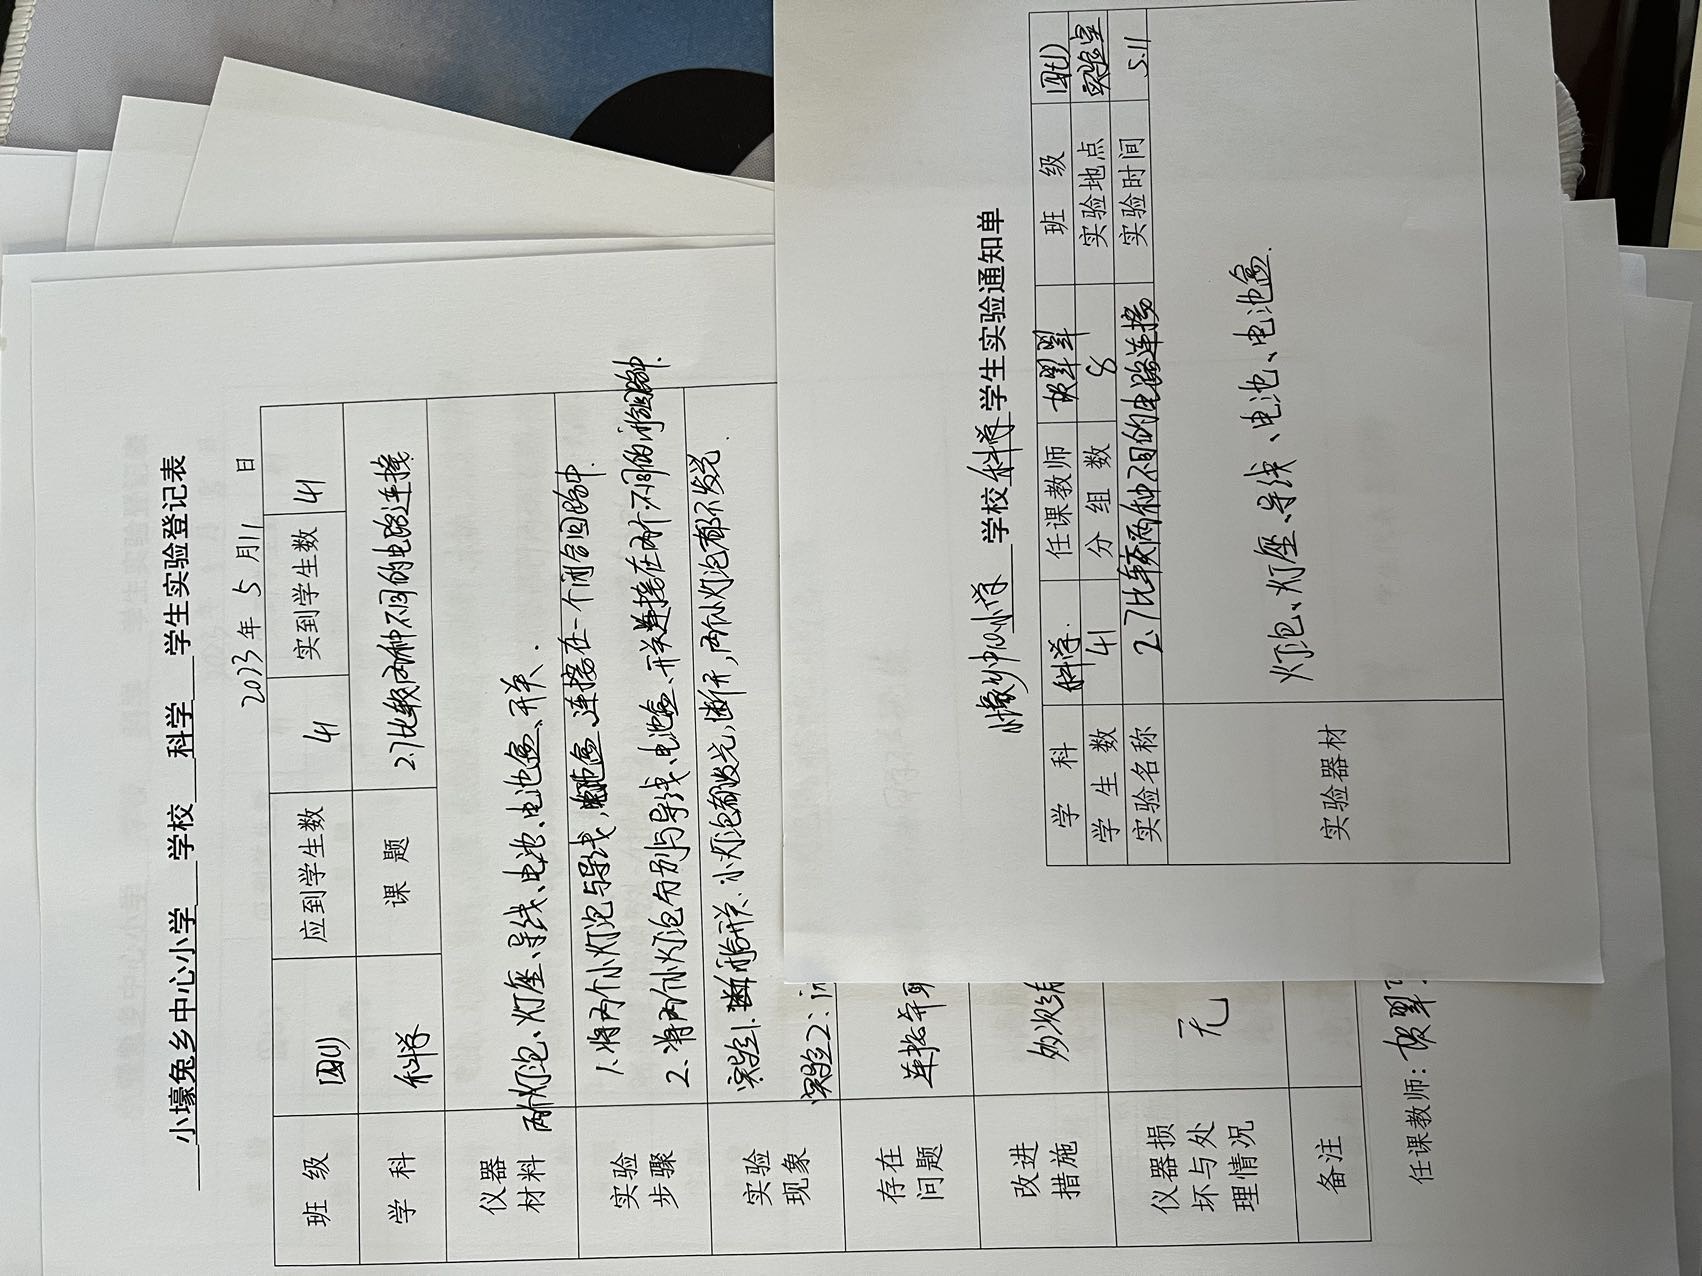 小壕兔乡中心小学 学校 科学 学生实验登记表
2023年 5 月11 日
班 级 四(1) 应到学生数 41 实到学生数 41
学 科 科学 课 题 2.7比较两种不同的电路连接
仪器
材料
两个灯泡、灯座、导线、电池、电池盒、开关.
实验
步骤
1、将两个小灯泡与导线, 电池盒、连接在一个闭合回路中.
2、将两个小灯泡分别与导线、电池盒、开关连接在两个不同的闭合回路中.
实验
现象
实验1: 闭合开关、小灯泡都发光,断开,两个小灯泡都不发光.
实验2:
存在
问题
连接
改进
措施
多次
仪器损
坏与处
理情况
无
备注
任课教师:
小壕兔中心小学 学校科学学生实验通知单
学 科 科学. 任课教师 班 级 四(1)
学 生 数 41 分 组 数 8 实验地点 实验室
实验名称 2.7比较两种不同的电路连接 实验时间 5.11
实验器材
灯泡、灯座、导线、电池、电池盒.